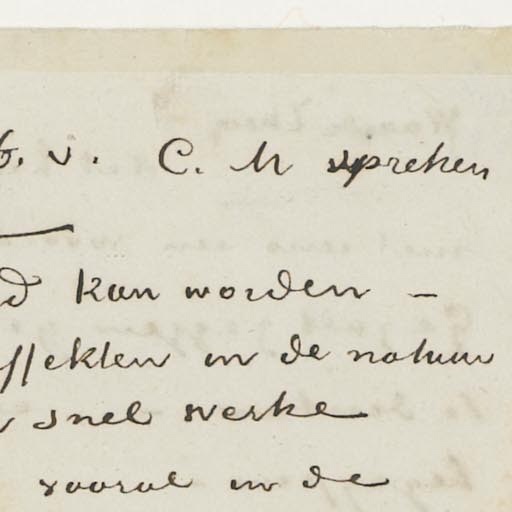 b. v. C. M spreken
d kan worden —
ffekten in de natuur
snel werke
vooral in de